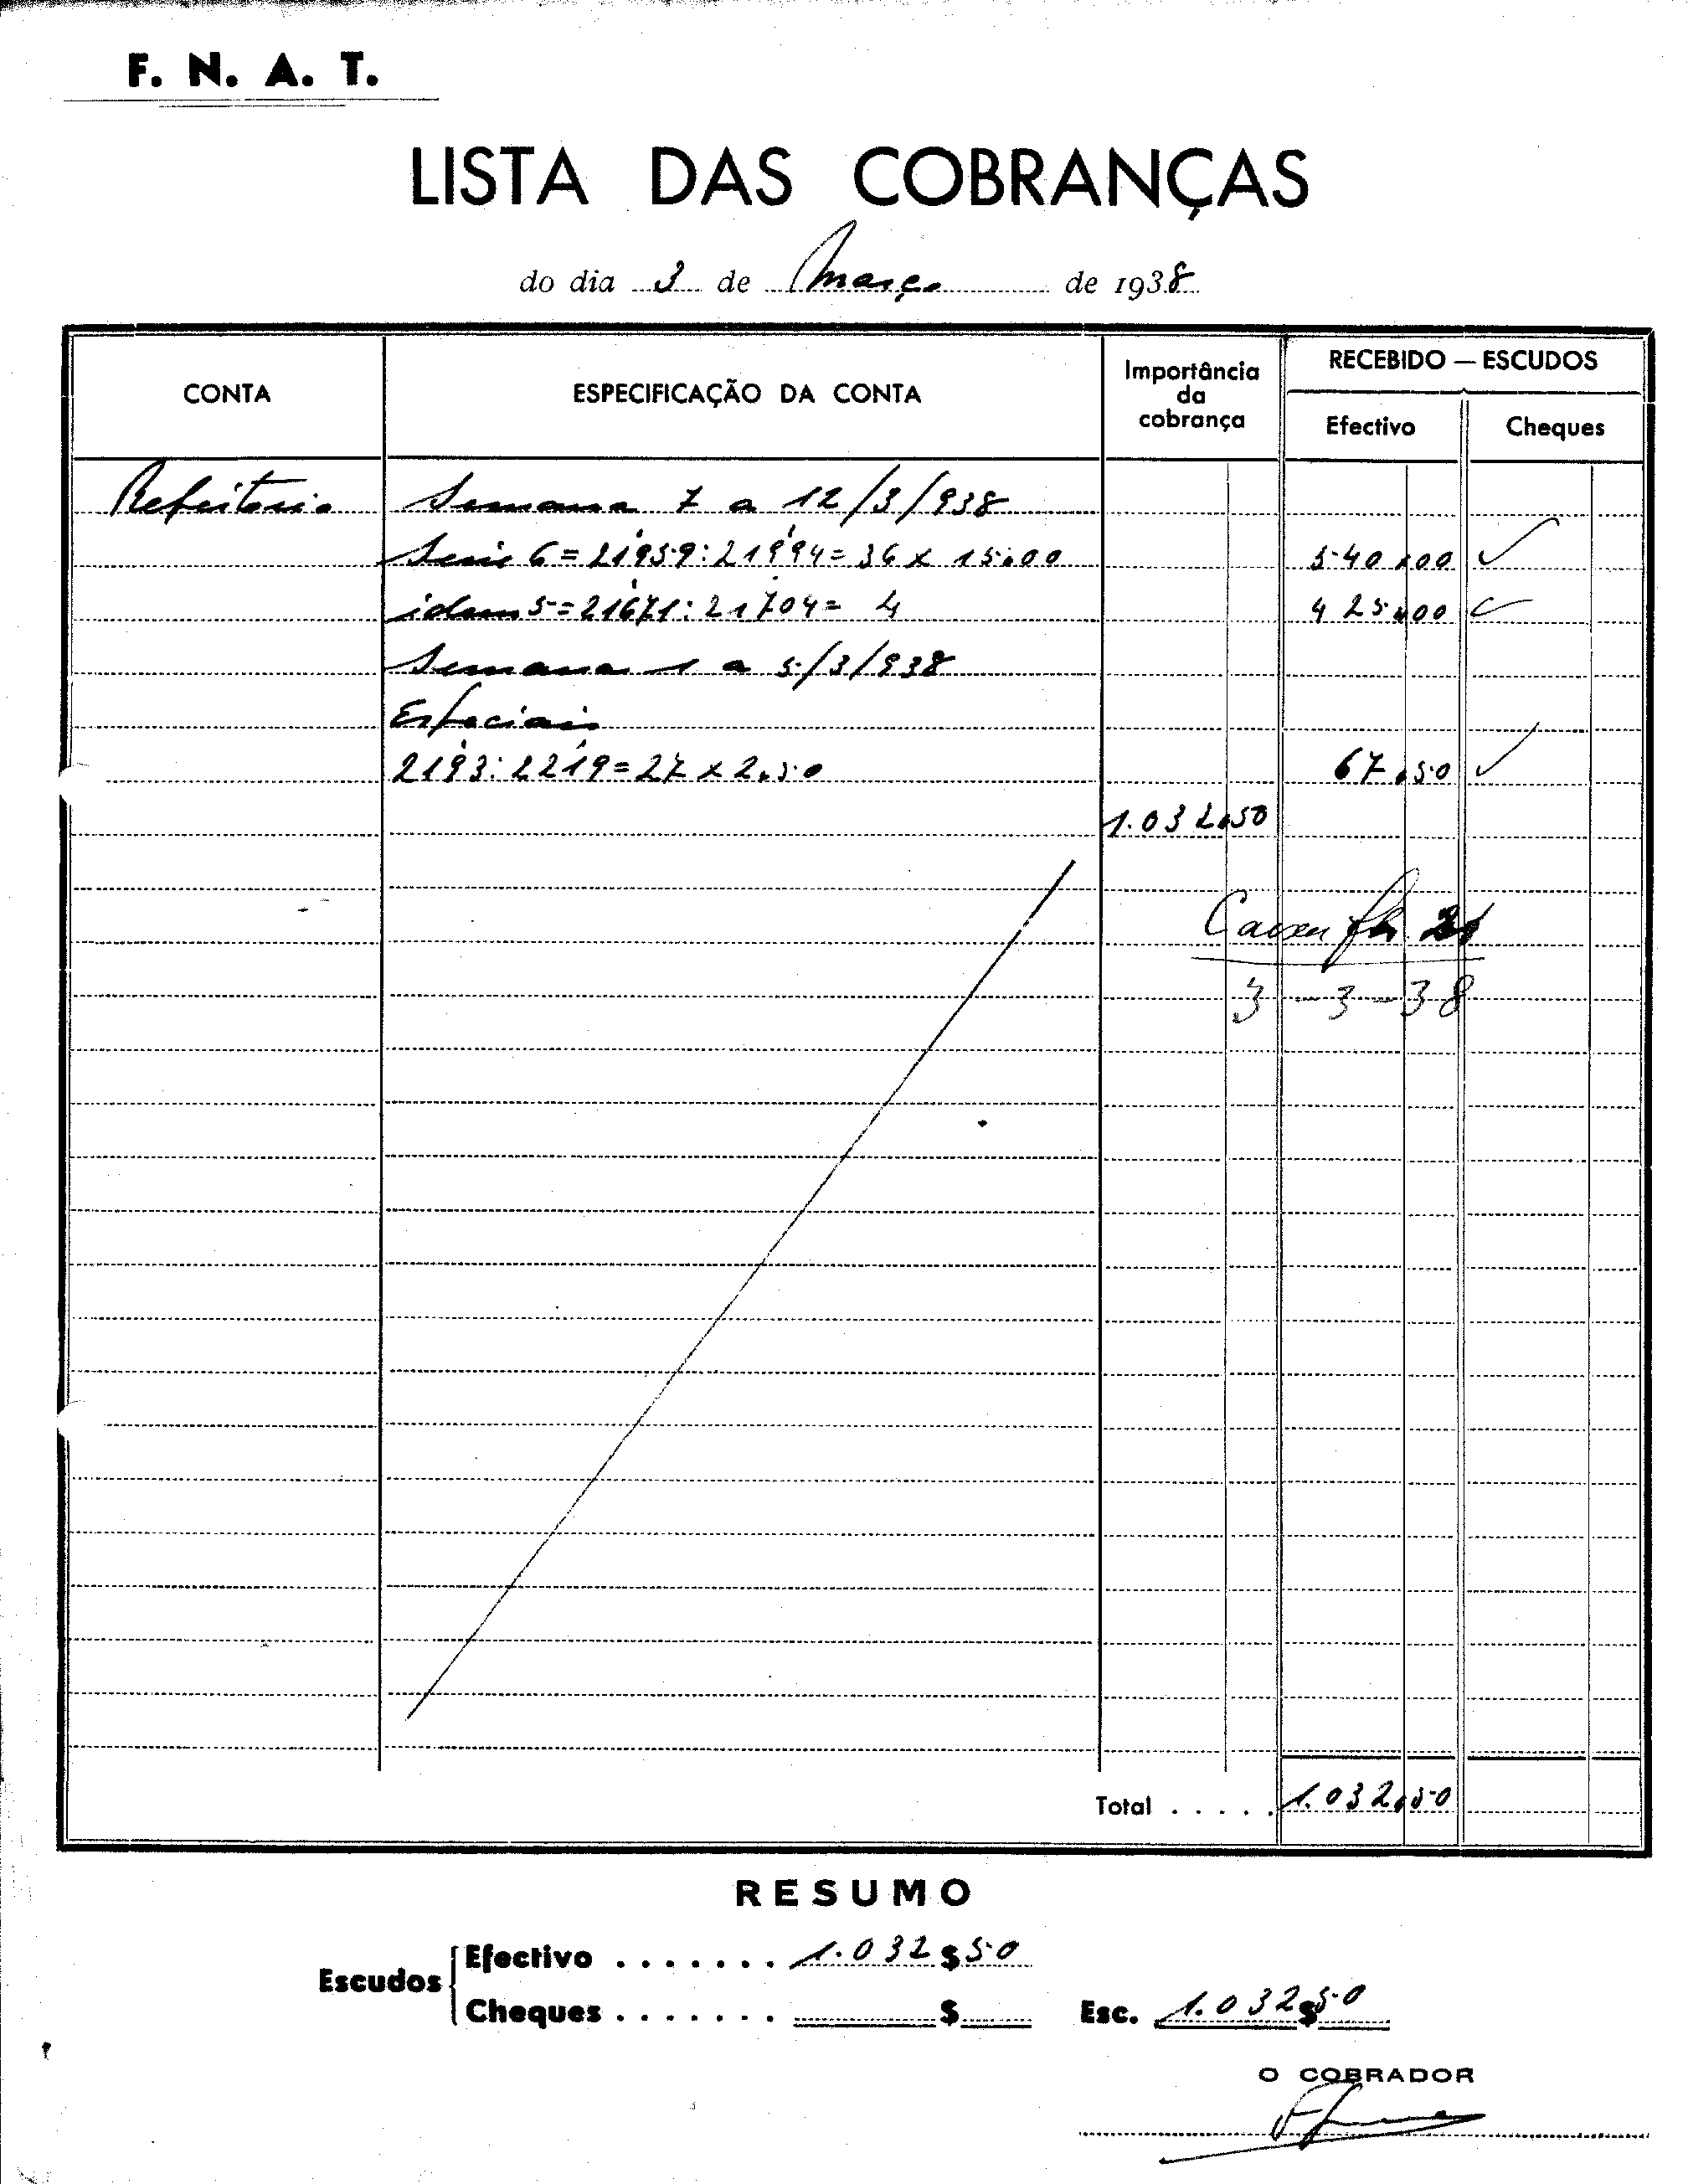 F. N. A. T.
LISTA DAS COBRANÇAS
do dia 3 de Março de 1938
CONTA
ESPECIFICAÇÃO DA CONTA
Importância
da
cobrança
RECEBIDO — ESCUDOS
Efectivo
Cheques
Refeitorio Semana 7 a 12/3/938
Serie 6 = 21959:21994 = 36 x 15.00 540.00
idem 5 = 21671:21704 = 425.00
Semana 1 a 5/3/938
Especiais
2193:2219 = 27 x 2.50 67.50
1.032.50
Caixa fls
3-3-38
Total . . . . . 1.032.50
RESUMO
Escudos
Efectivo . . . . . . . 1.032$50
Cheques . . . . . . . $
Esc. 1.032$50
O COBRADOR